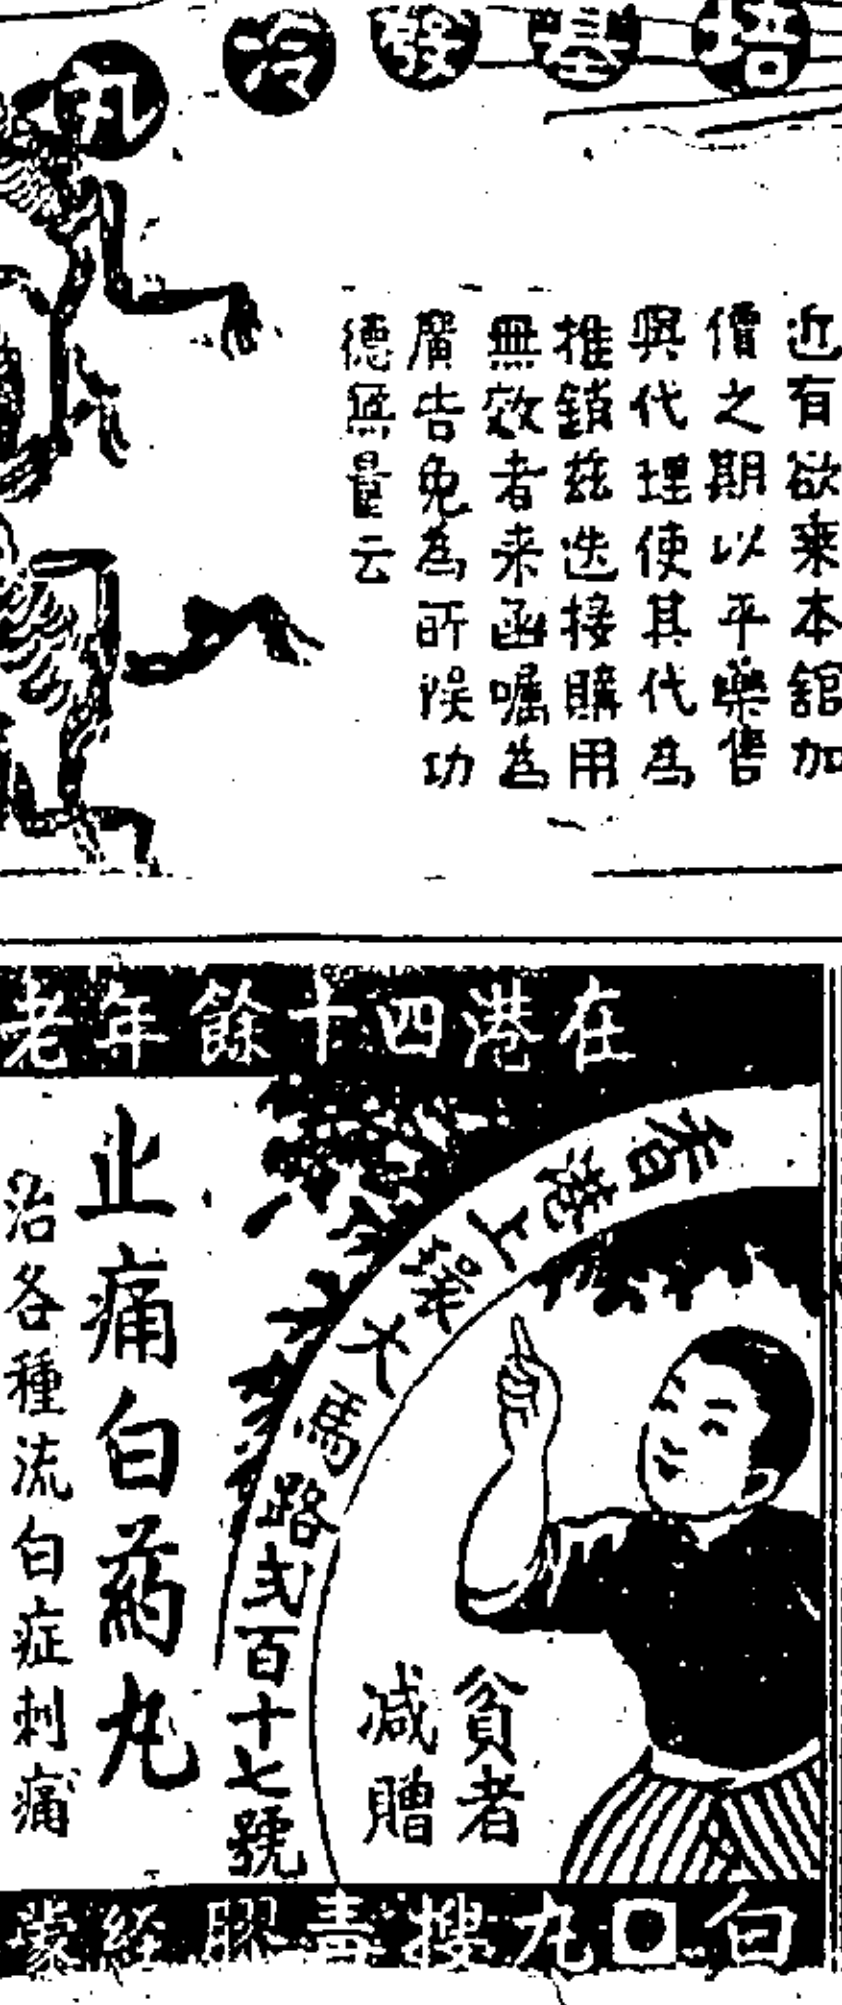 培基發冷丸
近有欲乘本舘加
價之期以平藥售
與代理使其代為
推銷兹迭接購用
無效者来函嘱為
廣告免為所悮功
德無量云
在港四十餘年老
香港上環大馬路弍百十七號
貧者
减贈
止痛白药丸
治各種流白症刺痛
白丸搜毒膠経蒙